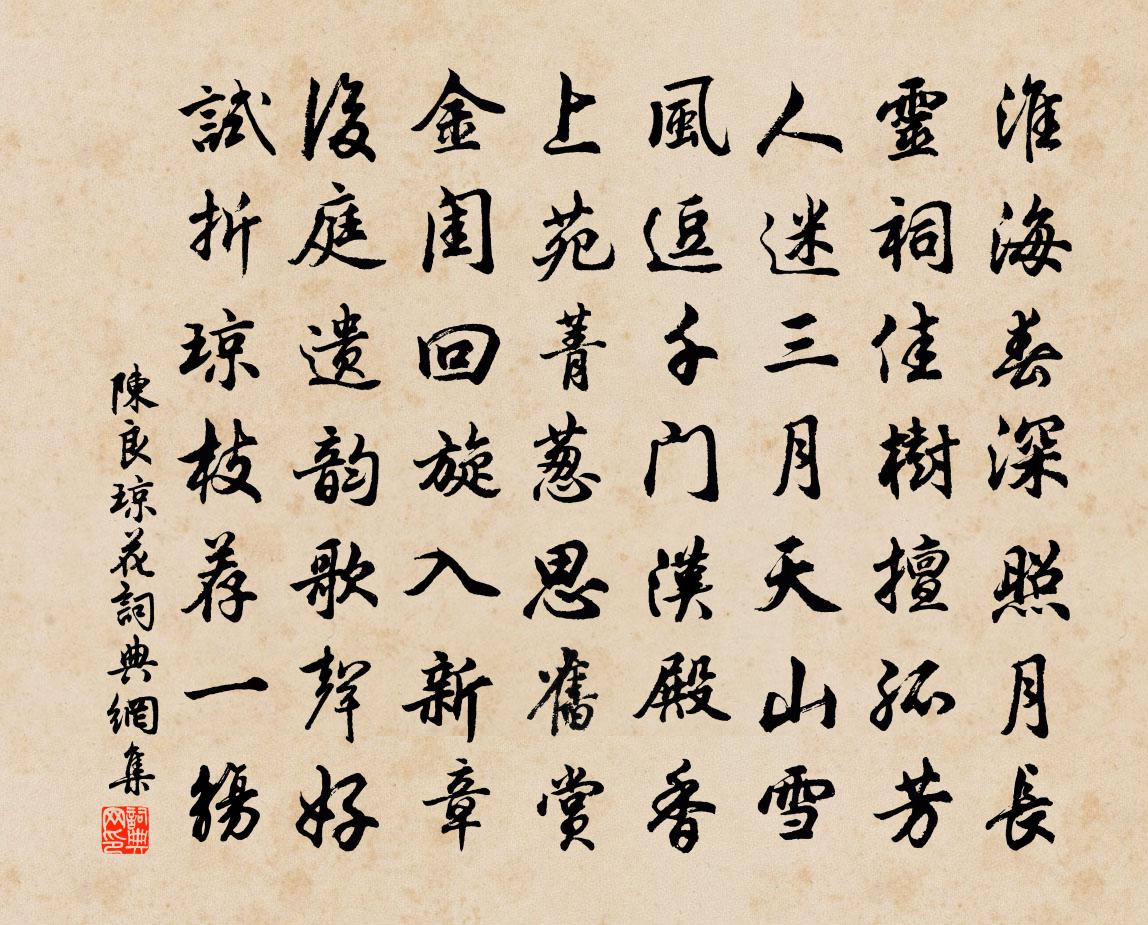 淮海春深照月長
靈祠佳樹擅孤芳
人迷三月天山雪
風逗千门漢殿香
上苑菁葱思舊賞
金閨回旋入新章
後庭遗韵歌聲好
試折琼枝荐一觴
陳良琼花詞典網集
詞典网印